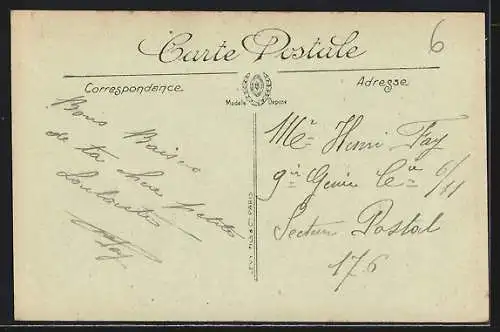 6
Carte Postale
Correspondance
Adresse
Modèle Déposé
Bons Baisers
de ta chère petite
Fay
LEVY FILS & Cie PARIS
Mr Henri Fay
9e Génie Cie 6/11
Secteur Postal
176